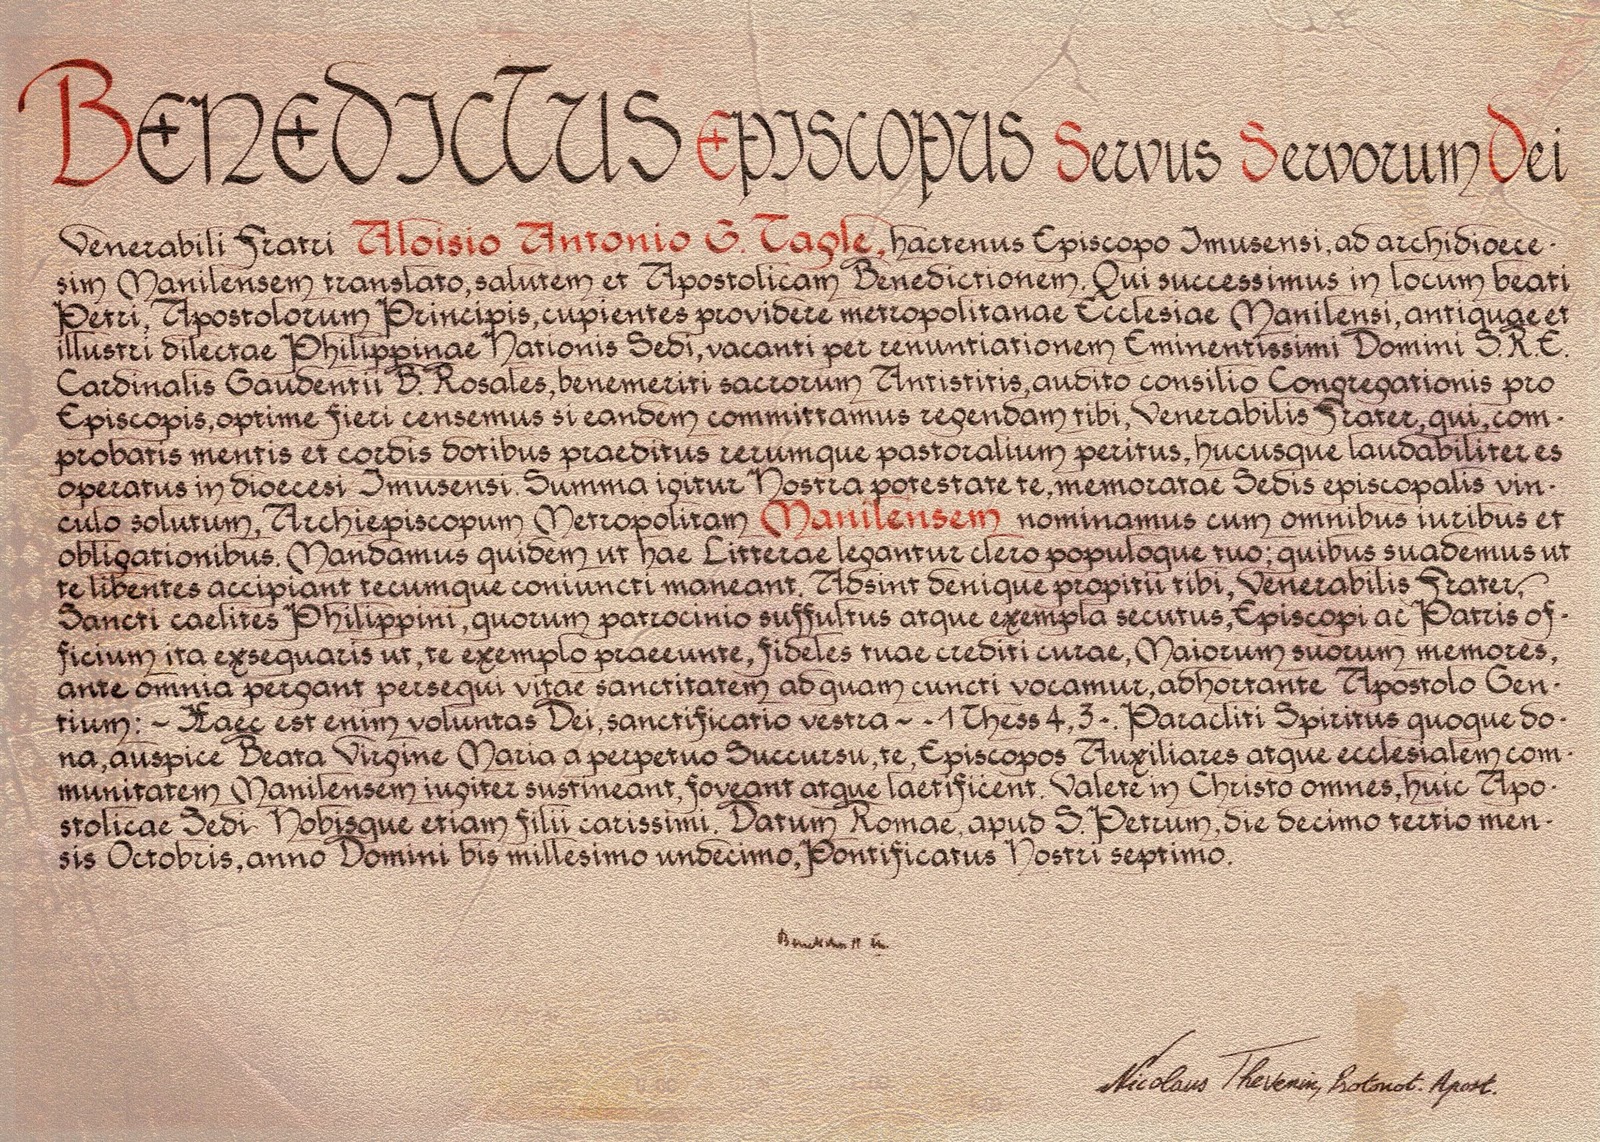 Benedictus Episcopus Servus Servorum Dei
Venerabili Fratri Aloisio Antonio G. Tagle, hactenus Episcopo Imusensi, ad archidioece-
sim Manilensem translato, salutem et Apostolicam Benedictionem. Qui successimus in locum beati
Petri, Apostolorum Principis, cupientes providere metropolitanae Ecclesiae Manilensi, antiquae et
illustri dilectae Philippinae Nationis Sedi, vacanti per renuntiationem Eminentissimi Domini S.R.E.
Cardinalis Gaudentii B. Rosales, benemeriti sacrorum Antistitis, audito consilio Congregationis pro
Episcopis, optime fieri censemus si eandem committamus regendam tibi, Venerabilis Frater, qui, com-
probatis mentis et cordis dotibus praeditus rerumque pastoralium peritus, hucusque laudabiliter es
operatus in dioecesi Imusensi. Summa igitur Nostra potestate te, memoratae Sedis episcopalis vin-
culo solutum, Archiepiscopum Metropolitam Manilensem nominamus cum omnibus iuribus et
obligationibus. Mandamus quidem ut hae Litterae legantur clero populoque tuo; quibus suademus ut
te libentes accipiant tecumque coniuncti maneant. Adsint denique propitii tibi, Venerabilis Frater,
Sancti caelites Philippini, quorum patrocinio suffultus atque exempla secutus, Episcopi ac Patris of-
ficium ita exsequaris ut, te exemplo praeeunte, fideles tuae crediti curae, Maiorum suorum memores,
ante omnia pergant persequi vitae sanctitatem ad quam cuncti vocamur, adhortante Apostolo Gen-
tium: ~ Haec est enim voluntas Dei, sanctificatio vestra ~ - 1 Thess 4, 3 -. Paracliti Spiritus quoque do-
na, auspice Beata Virgine Maria a perpetuo Succursu, te, Episcopos Auxiliares atque ecclesialem com-
munitatem Manilensem iugiter sustineant, foveant atque laetificent. Valete in Christo omnes, huic Apo-
stolicae Sedi Nobisque etiam filii carissimi. Datum Romae, apud S. Petrum, die decimo tertio men-
sis Octobris, anno Domini bis millesimo undecimo, Pontificatus Nostri septimo.
Nicolaus Thevenin, Protonot. Apost.